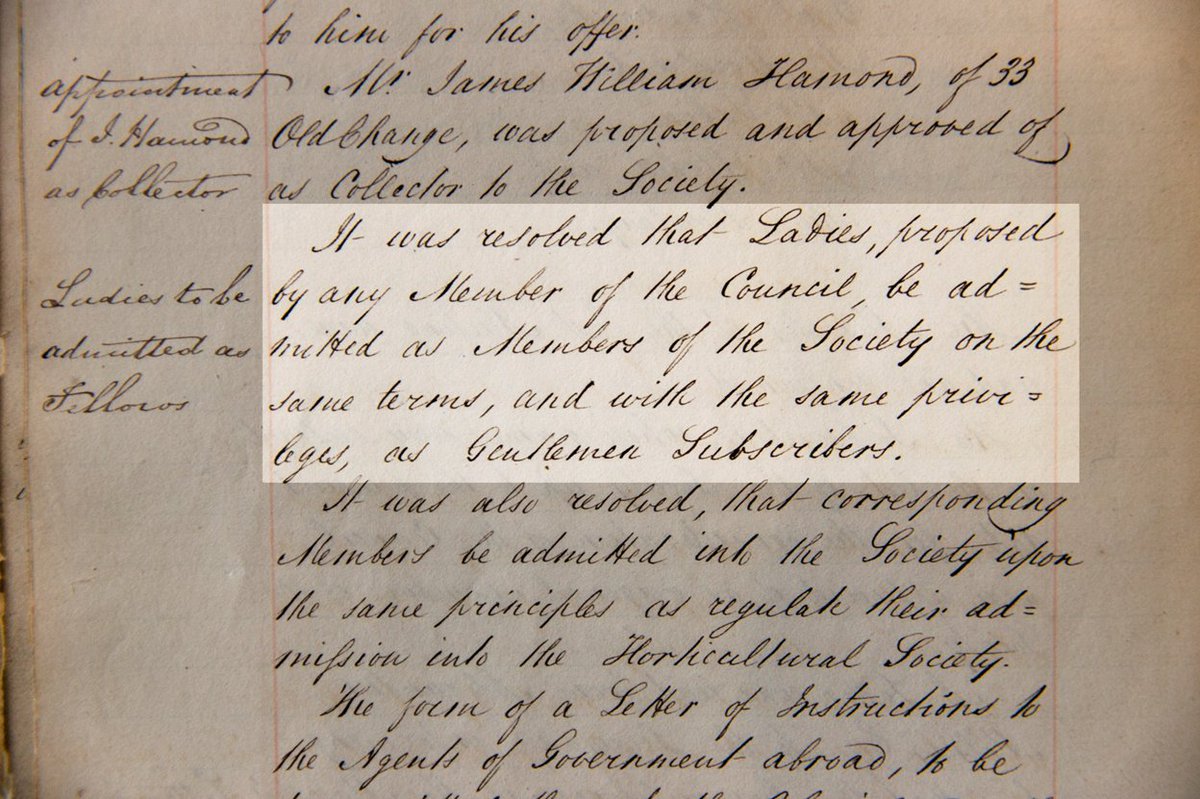 to him for his offer.
appointment
of J. Hamond
as Collector
Mr. James William Hamond, of 33
Old Change, was proposed and approved of
as Collector to the Society.
Ladies to be
admitted as
Fellows
It was resolved that Ladies, proposed
by any Member of the Council, be ad=
mitted as Members of the Society on the
same terms, and with the same privi=
leges, as Gentlemen Subscribers.
It was also resolved, that corresponding
Members be admitted into the Society upon
the same principles as regulate their ad=
mission into the Horticultural Society.
The form of a Letter of Instructions to
the Agents of Government abroad, to be